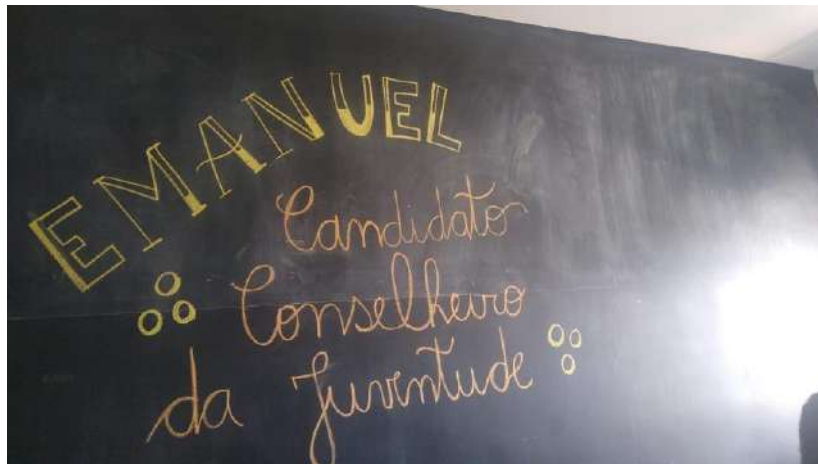 EMANUEL
Candidato
Conselheiro
da Juventude